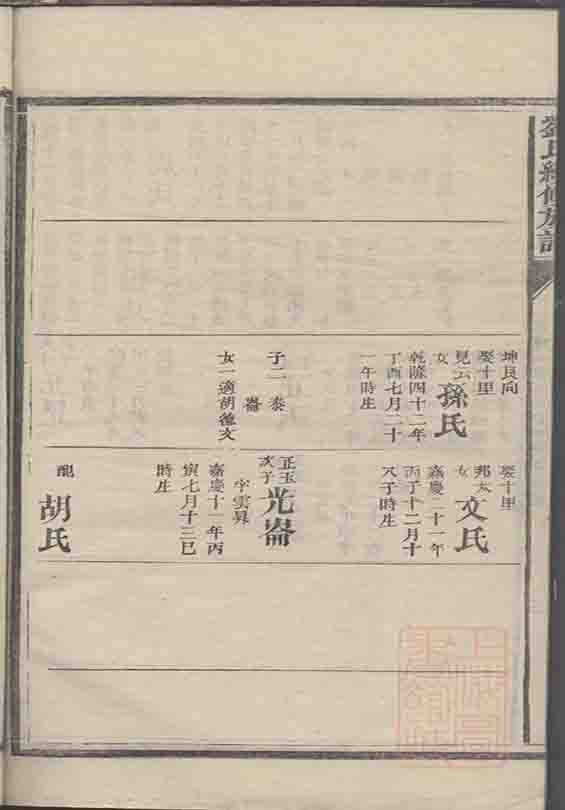 劉氏續修族譜
坤艮向
娶十里
見云
女
孫氏
乾隆四十二年
丁酉七月二十
一午時生
子二 泰
崙
女一適胡德文
娶十里
邦大
女
文氏
嘉慶二十一年
丙子十二月十
八子時生
正玉
次子
光崙
字雲昇
嘉慶十一年丙
寅七月十三巳
時生
配
胡氏